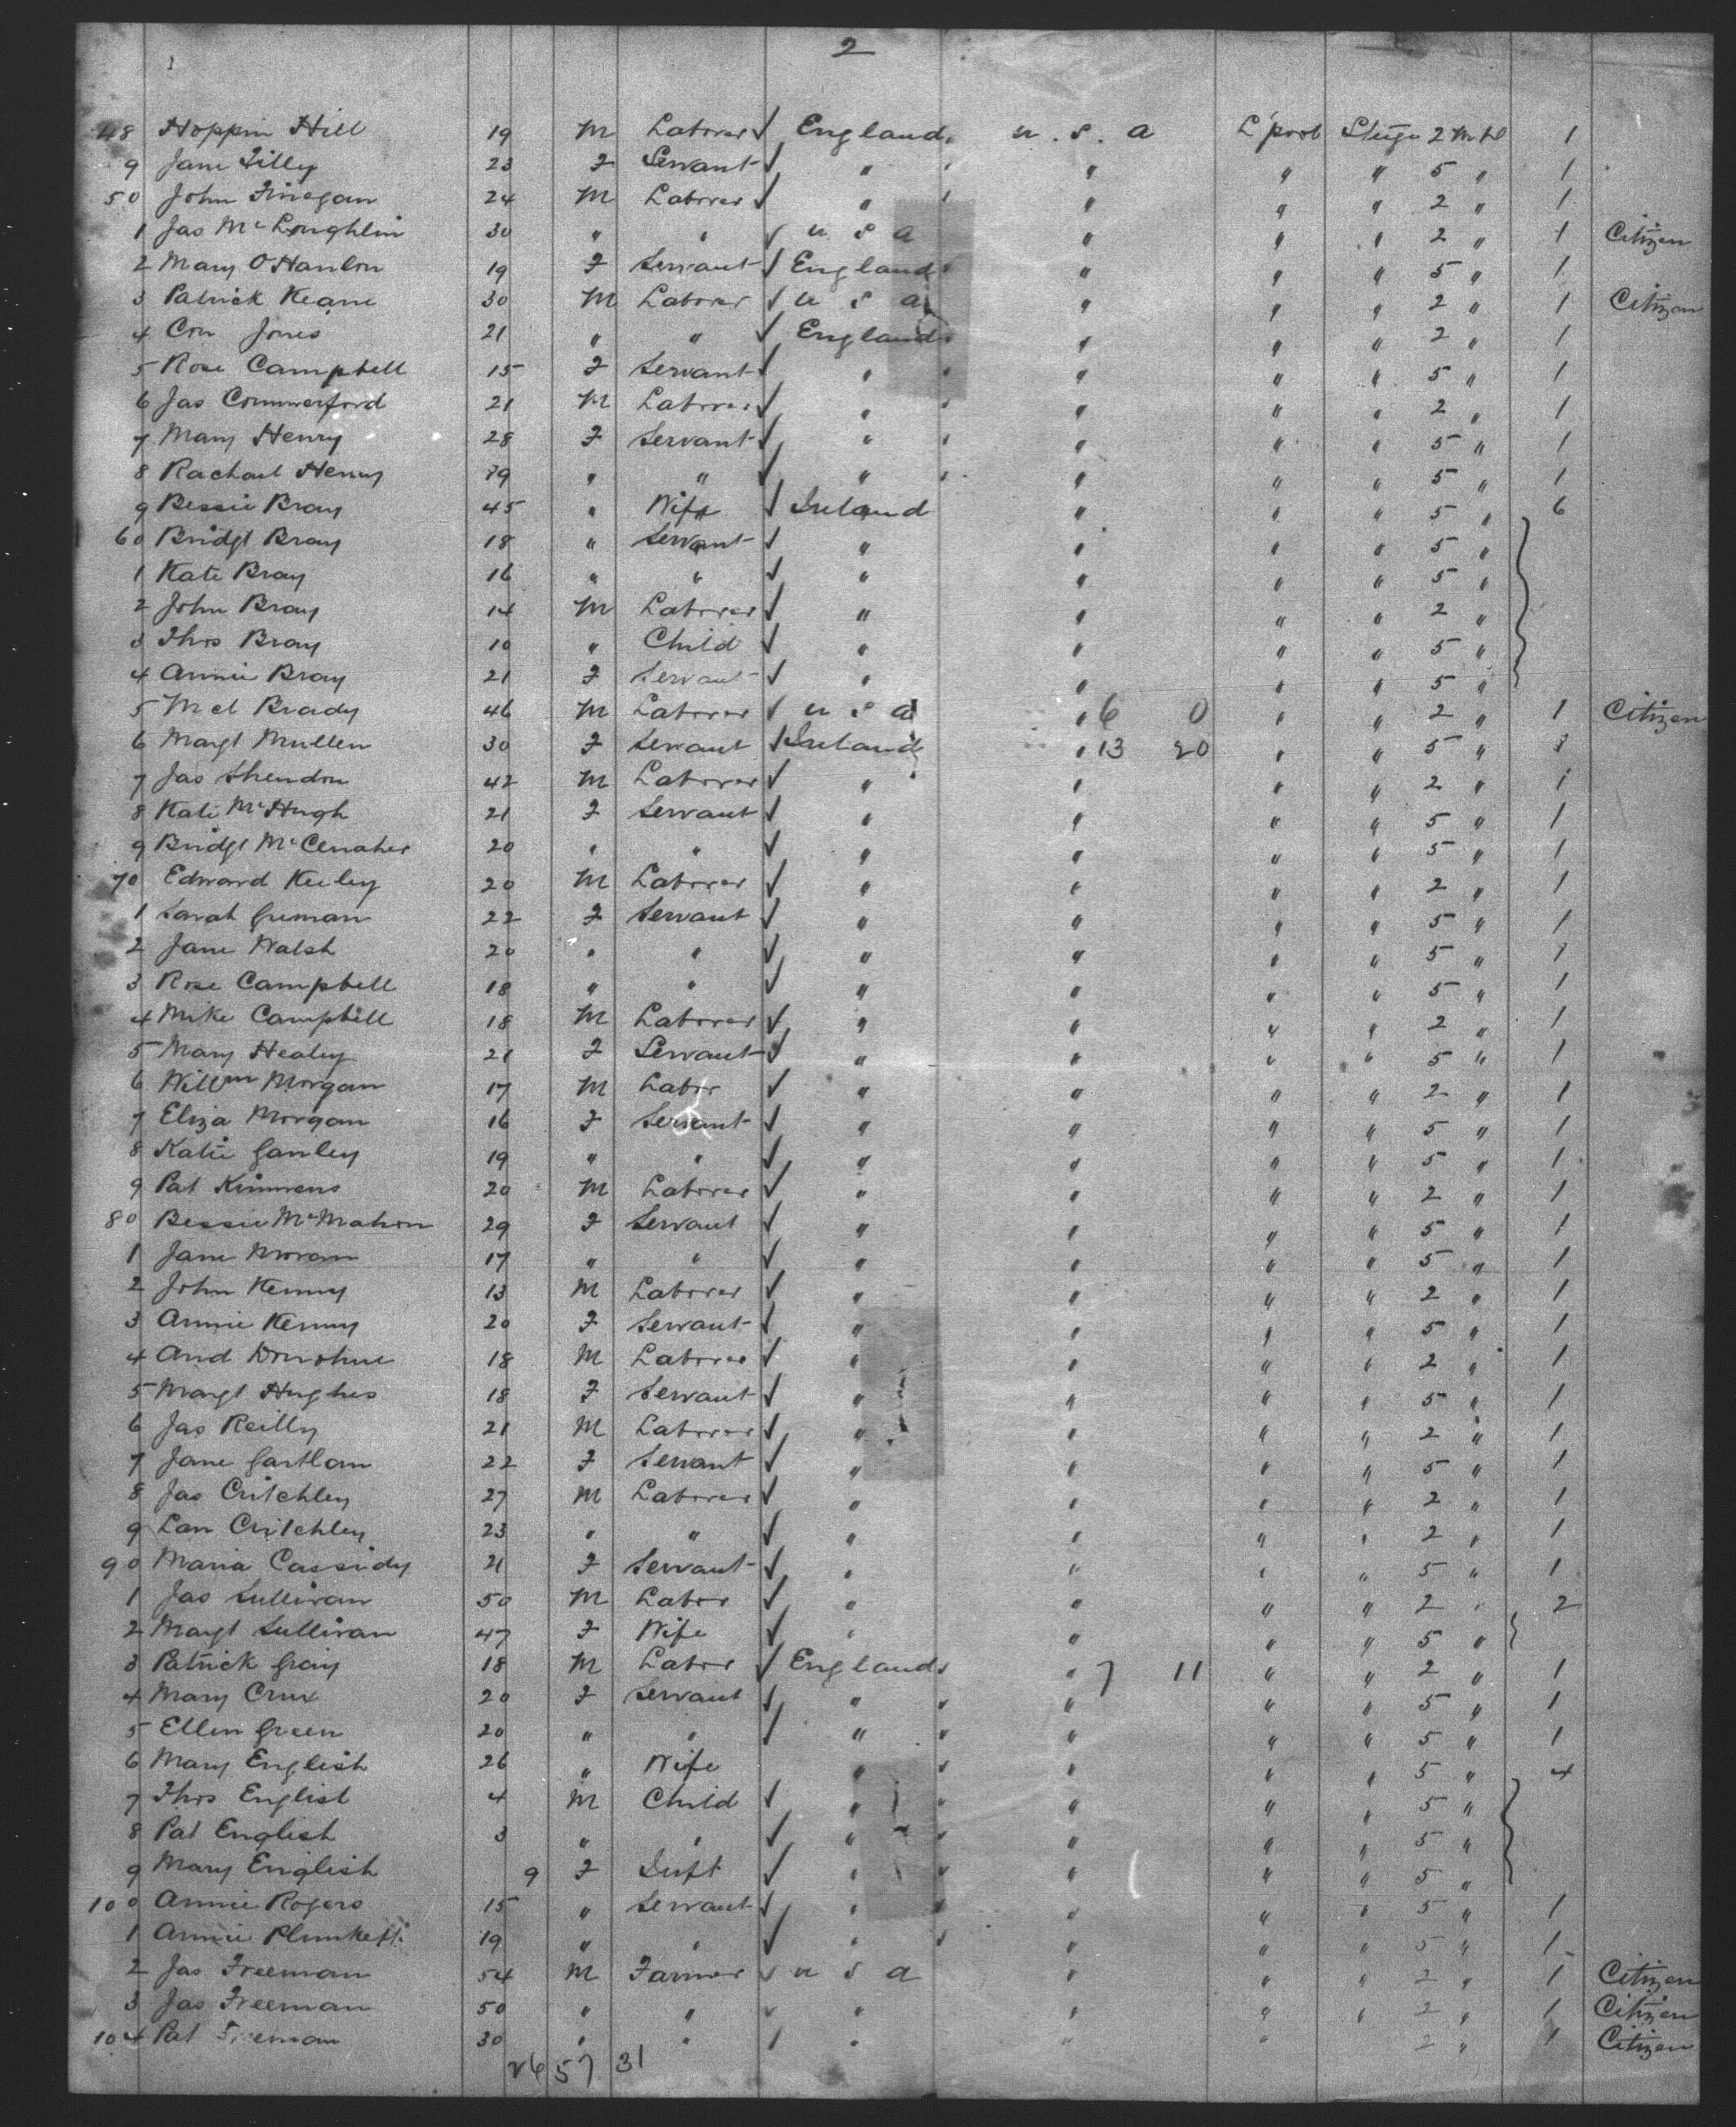 2
48 Hoppin Hill 19 M Laborer ✓ England u.s.a L'pool 2 1
9 Jane Tilly 23 F Servant ✓ " " " " 5 " 1
50 John Finegan 24 M Laborer ✓ " " " " 2 " 1
1 Jas McLoughlin 30 " " ✓ u s a " " " 2 " 1 Citizen
2 Mary O'Hanlon 19 F Servant ✓ England " " " 5 " 1
3 Patrick Keane 30 M Laborer ✓ u s a " " " 2 " 1 Citizen
4 Con Jones 21 " " ✓ England " " " 2 " 1
5 Rose Campbell 15 F Servant ✓ " " " " 5 " 1
6 Jas Commerford 21 M Laborer ✓ " " " " 2 " 1
7 Mary Henry 28 F Servant ✓ " " " " 5 " 1
8 Rachael Henry 19 " " ✓ " " " " 5 " 1
9 Bessie Bray 45 " Wife ✓ Ireland " " " 5 " 6
60 Bridgt Bray 18 " Servant ✓ " " " " 5 "
1 Kate Bray 16 " " ✓ " " " " 5 "
2 John Bray 14 M Laborer ✓ " " " " 2 "
3 Thos Bray 10 " Child ✓ " " " " 5 "
4 Annie Bray 21 F Servant ✓ " " " " 5 "
5 Mcl Brady 46 M Laborer ✓ u s a " 6 0 " " 2 " 1 Citizen
6 Margt Mullen 30 F Servant ✓ Ireland " 13 20 " " 5 " 1
7 Jas 42 M Laborer ✓ " " " " 2 " 1
8 Kate McHugh 21 F Servant ✓ " " " " 5 " 1
9 Bridgt 20 " " ✓ " " " " 5 " 1
70 Edward Keeley 20 M Laborer ✓ " " " " 2 " 1
1 Sarah 22 F Servant ✓ " " " " 5 " 1
2 Jane Walsh 20 " " ✓ " " " " 5 " 1
3 Rose Campbell 18 " " ✓ " " " " 5 " 1
4 Mike Campbell 18 M Laborer ✓ " " " " 2 " 1
5 Mary Healey 21 F Servant ✓ " " " " 5 " 1
6 Willm Morgan 17 M Labor ✓ " " " " 2 " 1
7 Eliza Morgan 16 F Servant ✓ " " " " 5 " 1
8 Katie Ganley 19 " " ✓ " " " " 5 " 1
9 Pat 20 M Laborer ✓ " " " " 2 " 1
80 Bessie McMahon 29 F Servant ✓ " " " " 5 " 1
1 Jane Moran 17 " " ✓ " " " " 5 " 1
2 John Kenny 13 M Laborer ✓ " " " " 2 " 1
3 Annie Kenny 20 F Servant ✓ " " " " 5 " 1
4 And Donohue 18 M Laborer ✓ " " " " 2 " 1
5 Margt Hughes 18 F Servant ✓ " " " " 5 " 1
6 Jas Reilly 21 M Laborer ✓ " " " " 2 " 1
7 Jane Gartlan 22 F Servant ✓ " " " " 5 " 1
8 Jas Critchley 27 M Laborer ✓ " " " " 2 " 1
9 Lan Critchley 23 " " ✓ " " " " 2 " 1
90 Maria Cassidy 21 F Servant ✓ " " " " 5 " 1
1 Jas Sullivan 50 M Labor ✓ " " " " 2 " 2
2 Margt Sullivan 47 F Wife ✓ " " " " 5 "
3 Patrick Gray 18 M Labor ✓ England " 7 11 " " 2 " 1
4 Mary 20 F Servant ✓ " " " " 5 " 1
5 Ellen Green 20 " " ✓ " " " " 5 " 1
6 Mary English 26 " Wife " " " " 5 " 4
7 Thos English 4 M Child ✓ " " " " 5 "
8 Pat English 3 " " ✓ " " " " 5 "
9 Mary English 9 F Inft ✓ " " " " 5 "
100 Annie Rogers 15 " Servant ✓ " " " " 5 " 1
1 Annie Plunkett 19 " " ✓ " " " " 5 " 1
2 Jas Freeman 54 M Farmer ✓ u s a " " " 2 " 1 Citizen
3 Jas Freeman 50 " " ✓ " " " " 2 " 1 Citizen
104 Pat Freeman 30 " " ✓ " " " 2 " 1 Citizen
26 57 31